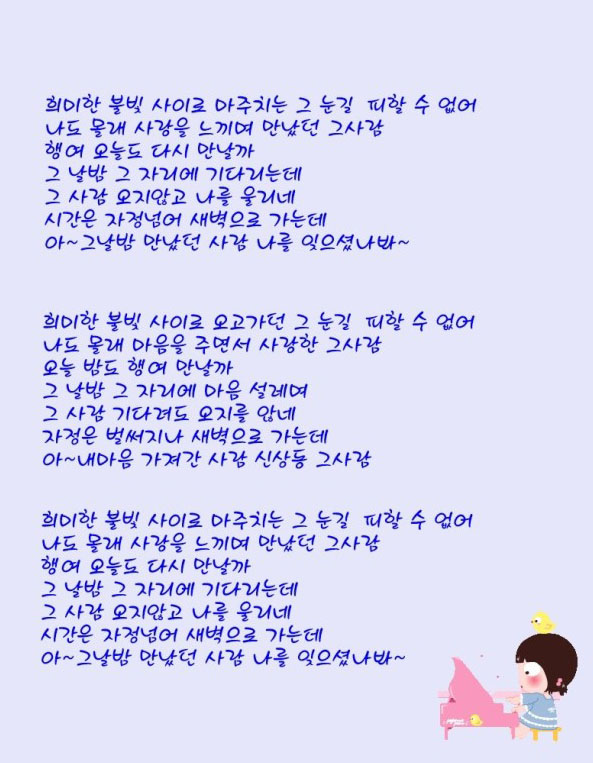 희미한 불빛 사이로 마주치는 그 눈길 피할 수 없어
나도 몰래 사랑을 느끼며 만났던 그사람
행여 오늘도 다시 만날까
그 날밤 그 자리에 기다리는데
그 사람 오지않고 나를 울리네
시간은 자정넘어 새벽으로 가는데
아~그날밤 만났던 사람 나를 잊으셨나봐~
희미한 불빛 사이로 오고가던 그 눈길 피할 수 없어
나도 몰래 마음을 주면서 사랑한 그사람
오늘 밤도 행여 만날까
그 날밤 그 자리에 마음 설레며
그 사람 기다려도 오지를 않네
자정은 벌써지나 새벽으로 가는데
아~내마음 가져간 사람 신상등 그사람
희미한 불빛 사이로 마주치는 그 눈길 피할 수 없어
나도 몰래 사랑을 느끼며 만났던 그사람
행여 오늘도 다시 만날까
그 날밤 그 자리에 기다리는데
그 사람 오지않고 나를 울리네
시간은 자정넘어 새벽으로 가는데
아~그날밤 만났던 사람 나를 잊으셨나봐~